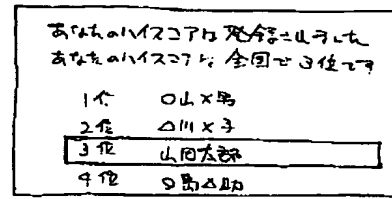 あなたのハイスコアは登録されました
あなたのハイスコアは、全国で3位です
1位 ○山×男
2位 △川×子
3位 山田太郎
4位 □島△助